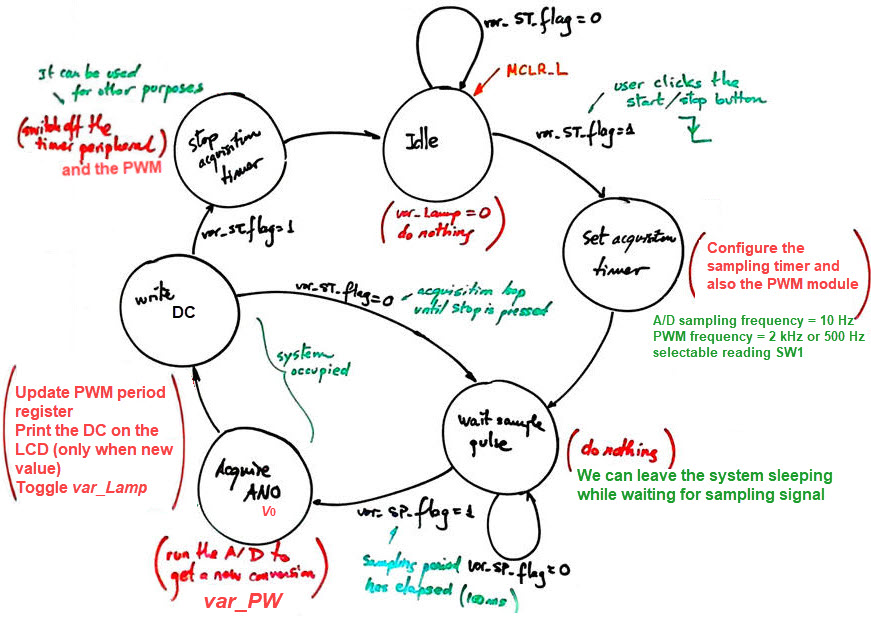 var_ST_flag = 0
MCLR_L
It can be used
for other purposes
user clicks the
start/stop button
(switch off the
timer peripheral)
and the PWM
Stop
acquisition
timer
Idle
var_ST_flag=1
(var_Lamp = 0
do nothing)
var_ST_flag=1
Set acquisition
timer
(Configure the
sampling timer and
also the PWM module)
A/D sampling frequency = 10 Hz
PWM frequency = 2 kHz or 500 Hz
selectable reading SW1
write
DC
var_ST_flag=0
acquisition loop
until stop is pressed
system
occupied
(Update PWM period
register
Print the DC on the
LCD (only when new
value)
Toggle var_Lamp)
wait sample
pulse
(do nothing)
We can leave the system sleeping
while waiting for sampling signal
Acquire
AN0
V0
var_SP_flag=1
(run the A/D to
get a new conversion)
var_PW
Sampling period
has elapsed (100ms)
var_SP_flag=0